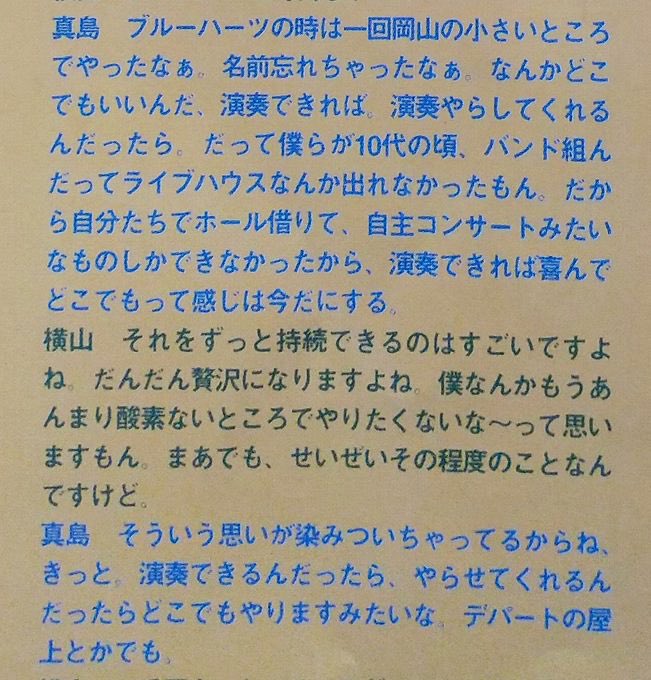 真島　ブルーハーツの時は一回岡山の小さいところ
でやったなぁ。名前忘れちゃったなぁ。なんかどこ
でもいいんだ、演奏できれば。演奏やらしてくれる
んだったら。だって僕らが10代の頃、バンド組ん
だってライブハウスなんか出れなかったもん。だか
ら自分たちでホール借りて、自主コンサートみたい
なものしかできなかったから、演奏できれば喜んで
どこでもって感じは今だにする。
横山　それをずっと持続できるのはすごいですよ
ね。だんだん贅沢になりますよね。僕なんかもうあ
んまり酸素ないところでやりたくないな〜って思い
ますもん。まあでも、せいぜいその程度のことなん
ですけど。
真島　そういう思いが染みついちゃってるからね、
きっと。演奏できるんだったら、やらせてくれるん
だったらどこでもやりますみたいな。デパートの屋
上とかでも。